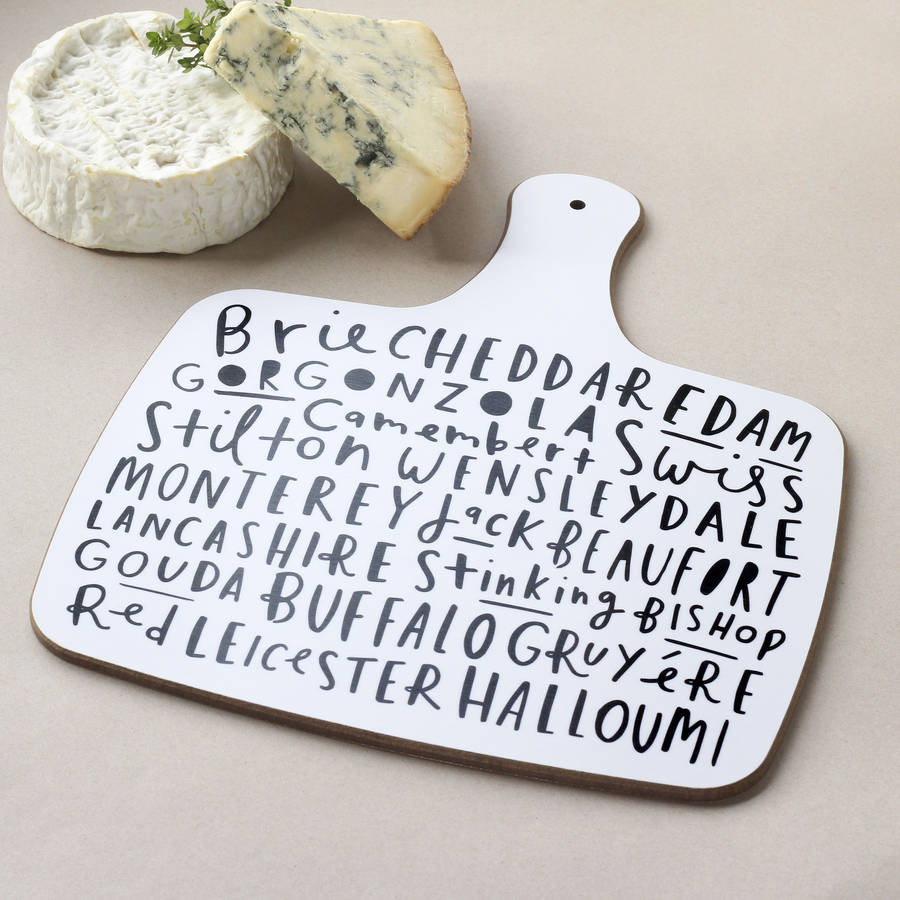 Brie CHEDDAR EDAM
GORGONZOLA Swiss
Stilton Camembert WENSLEYDALE
MONTEREY Jack BEAUFORT
LANCASHIRE Stinking BISHOP
GOUDA BUFFALO GRUYéRE
Red LEICeSTER HALLOUMI